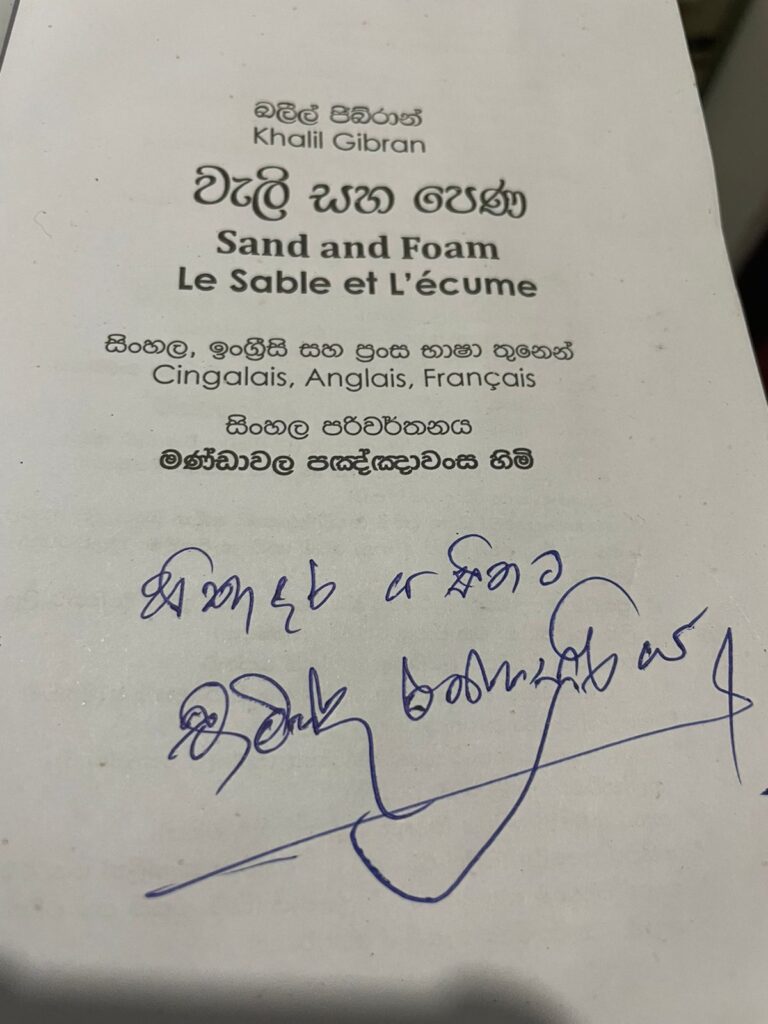 ඛලීල් ජිබ්රාන්
Khalil Gibran
වැලි සහ පෙණ
Sand and Foam
Le Sable et L'écume
සිංහල, ඉංග්‍රීසි සහ ප්‍රංස භාෂා තුනෙන්
Cingalais, Anglais, Français
සිංහල පරිවර්තනය
මණ්ඩාවල පඤ්ඤාවංස හිමි
හිතාදර